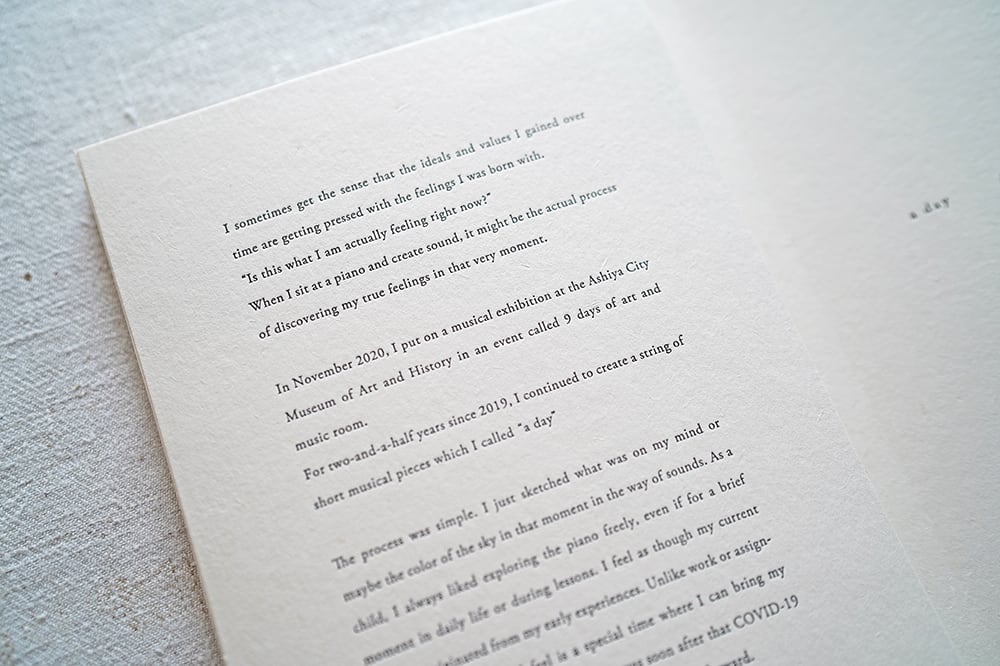 I sometimes get the sense that the ideals and values I gained over
time are getting pressed with the feelings I was born with.
“Is this what I am actually feeling right now?”
When I sit at a piano and create sound, it might be the actual process
of discovering my true feelings in that very moment.
In November 2020, I put on a musical exhibition at the Ashiya City
Museum of Art and History in an event called 9 days of art and
music room.
For two-and-a-half years since 2019, I continued to create a string of
short musical pieces which I called “a day”
The process was simple. I just sketched what was on my mind or
maybe the color of the sky in that moment in the way of sounds. As a
child, I always liked exploring the piano freely, even if for a brief
moment in daily life or during lessons. I feel as though my current
from my early experiences. Unlike work or assign-
feel is a special time where I can bring my
soon after that COVID-19
a day